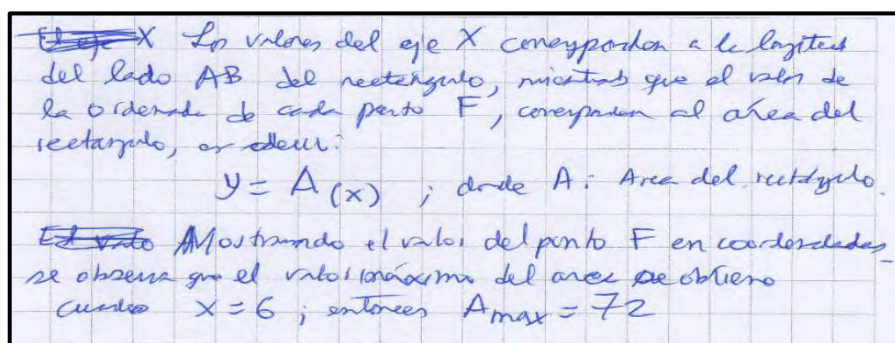 X Los valores del eje X corresponden a la longitud
del lado AB del rectángulo, mientras que el valor de
la ordenada de cada punto F, corresponden al área del
rectángulo, es decir:
y = A(x) ; donde A: Area del rectángulo.
Mostrando el valor del punto F en coordenadas
se observa que el valor máximo del area se obtiene
cuando x = 6 ; entonces Amax = 72